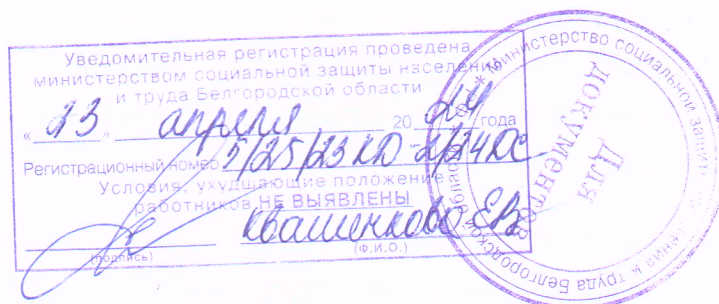 Уведомительная регистрация проведена
министерством социальной защиты населения
и труда Белгородской области
« 23 » апреля 2024 года
Регистрационный номер 5/25/23КД-2/24ДС
Условия, ухудшающие положение
работников НЕ ВЫЯВЛЕНЫ
Квашенково Е.В.
(подпись) (Ф.И.О.)
* Министерство социальной защиты населения и труда Белгородской области
Для
документов